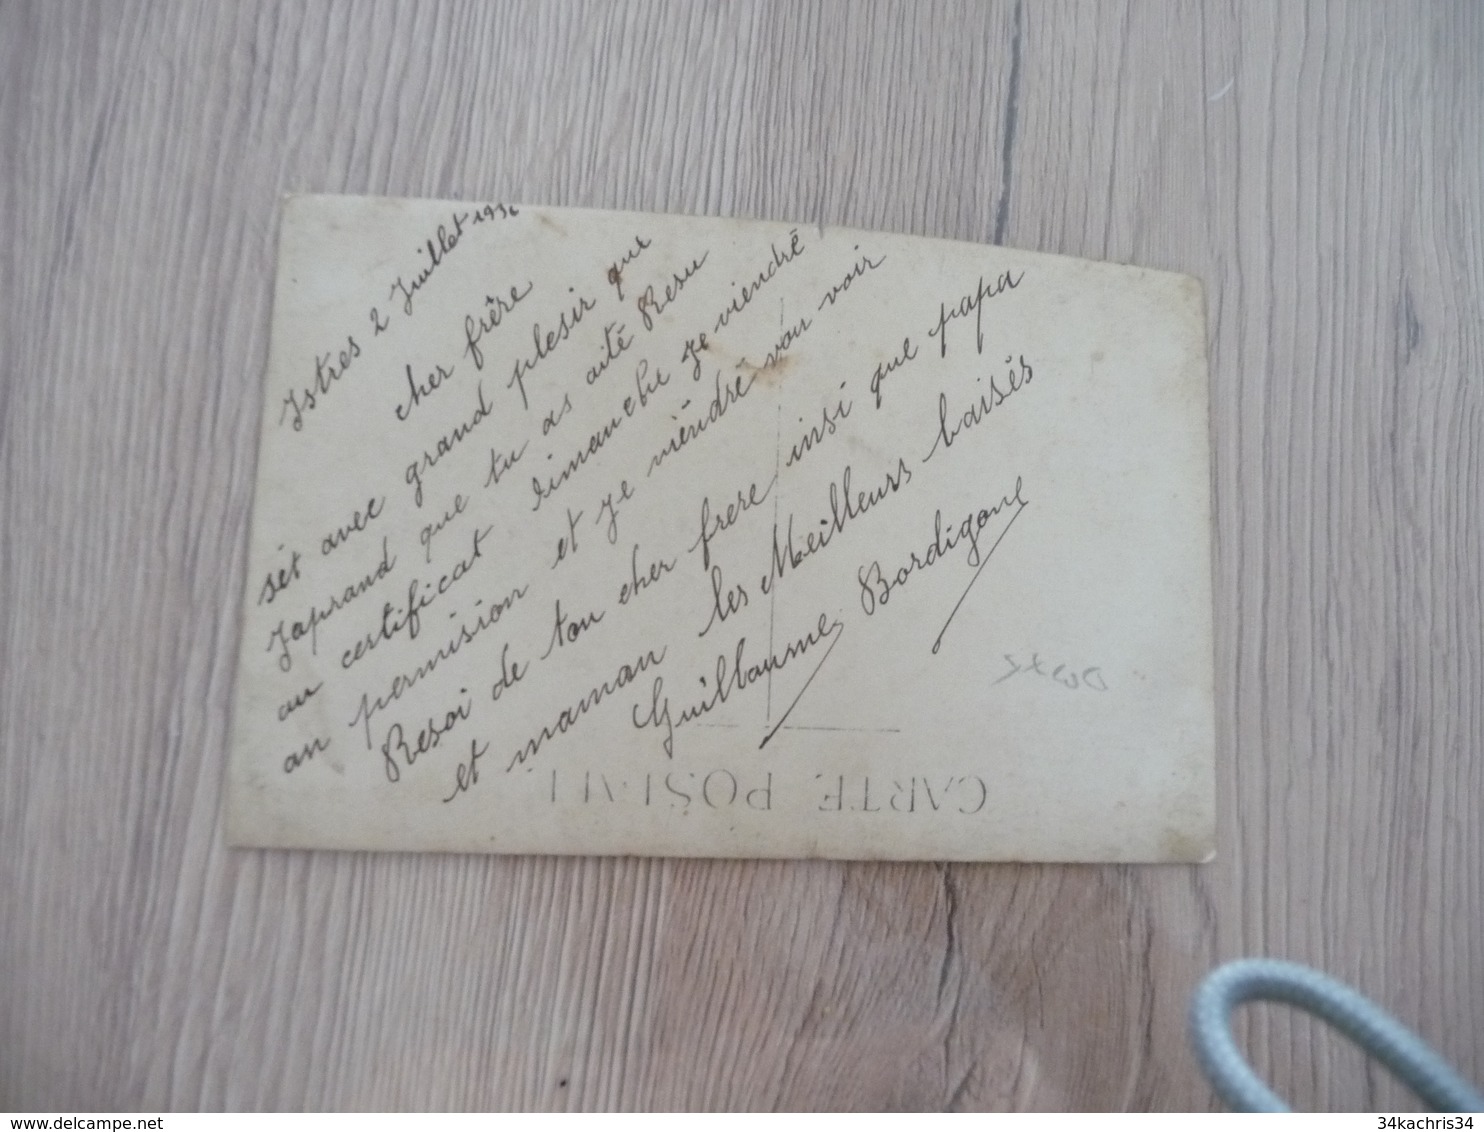 Istres 2 Juillet 193
cher frêre
sét avec grand plesir que
Japrand que tu as aité Resu
au certificat dimanche Je viendré
an permision et Je viéndré vou voir
Resoi de ton cher frere insi que papa
et maman les Meilleurs baisés
Guillaume Bordigone
CARTE POSTALE
34kachris34